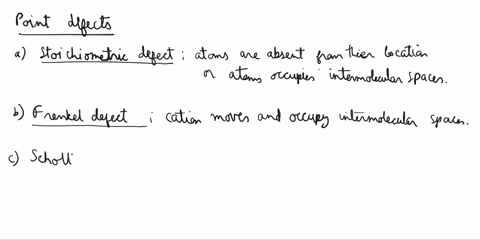 Point defects
a) Stoichiometric defect ; atoms are absent from thier location
or atoms occupies intermolecular spaces.
b) Frenkel defect ; cation moves and occupy intermolecular spaces.
c) Schott